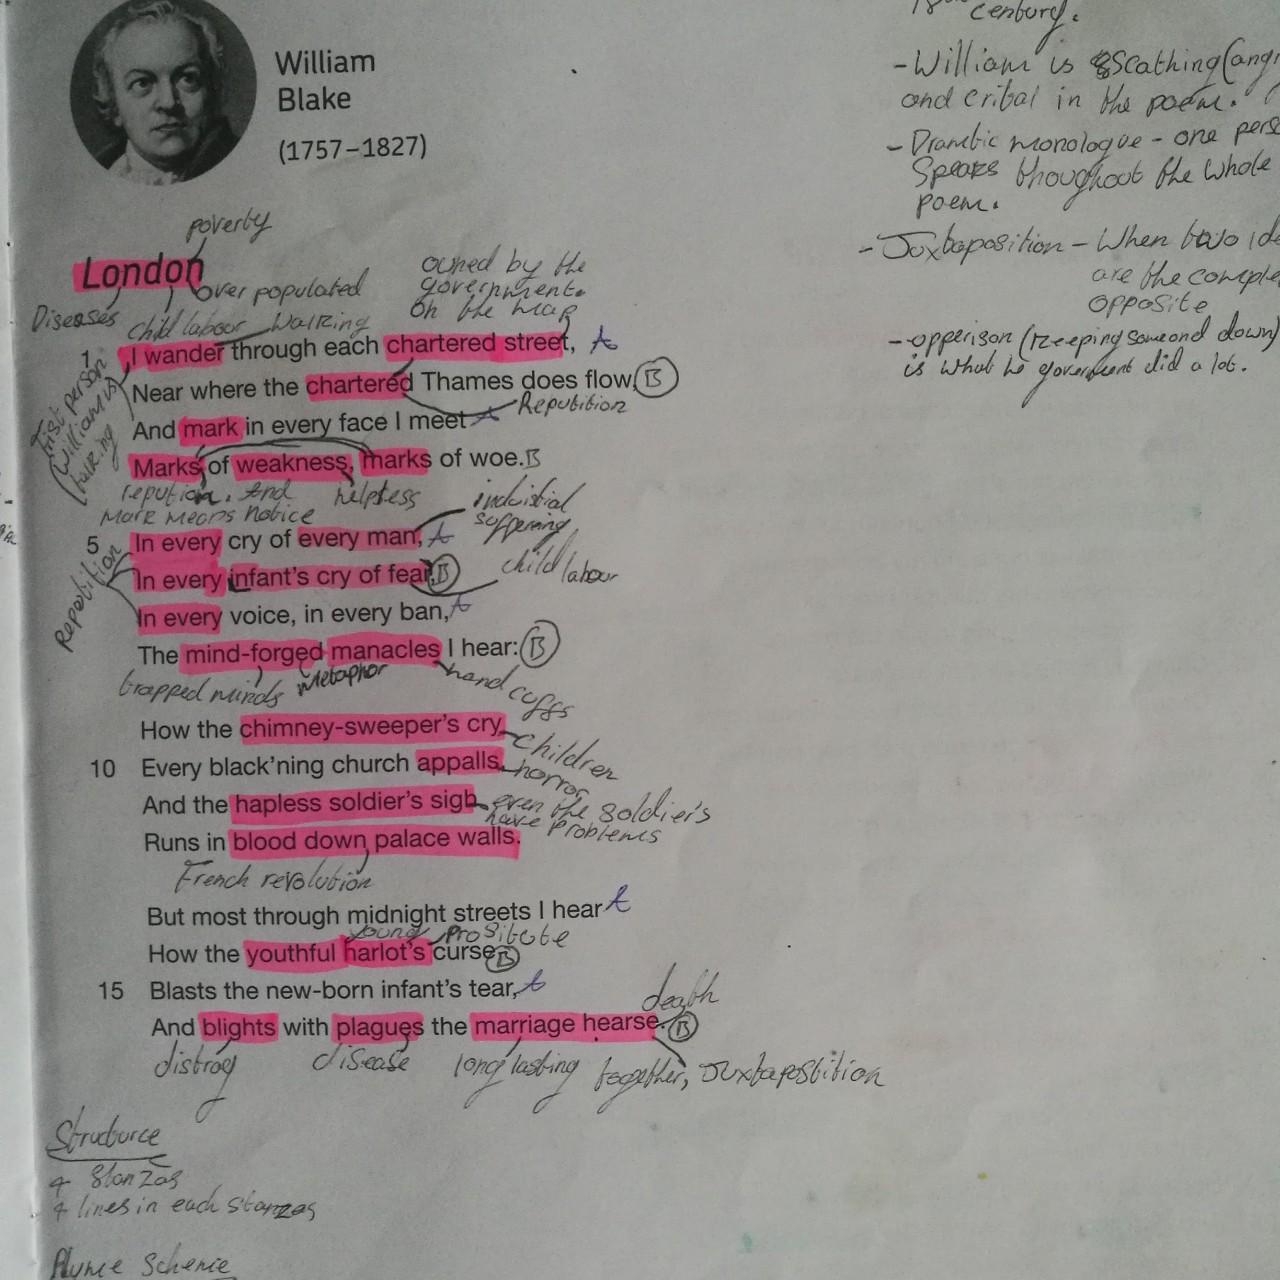 18th century.
William
Blake
(1757–1827)
- William is Scathing (angr
and cribal in the poem.
- Dramatic monologue - one perso
Speaks thoughout the whole
poem.
- Juxtaposition - When two ide
are the comple
opposite
- opperison (keeping someond down)
is what he government did a lot.
poverty
London
over populated
Diseases
child labour
owned by the
government.
On the map
Walking
1 I wander through each chartered street, A
Near where the chartered Thames does flow, B
Reputition
And mark in every face I meet A
Marks of weakness, marks of woe. B
First person
(William is
talking
repution. And
mark means notice
helpless
industial
suffering
5 In every cry of every man, A
In every infant's cry of fear, B
child labour
In every voice, in every ban, A
Repotition
The mind-forged manacles I hear: B
trapped minds
Metaphor
hand cuffs
How the chimney-sweeper's cry
children
10 Every black'ning church appalls,
horror
And the hapless soldier's sigh
even the soldier's
have problems
Runs in blood down palace walls.
French revolution
But most through midnight streets I hear A
young
prositute
How the youthful harlot's curse B
15 Blasts the new-born infant's tear, A
death
And blights with plagues the marriage hearse. B
distroy
disease
long lasting
together, Juxtapostition
Structurce
4 Stanzas
4 lines in each stanzas
Rhyme Scheme